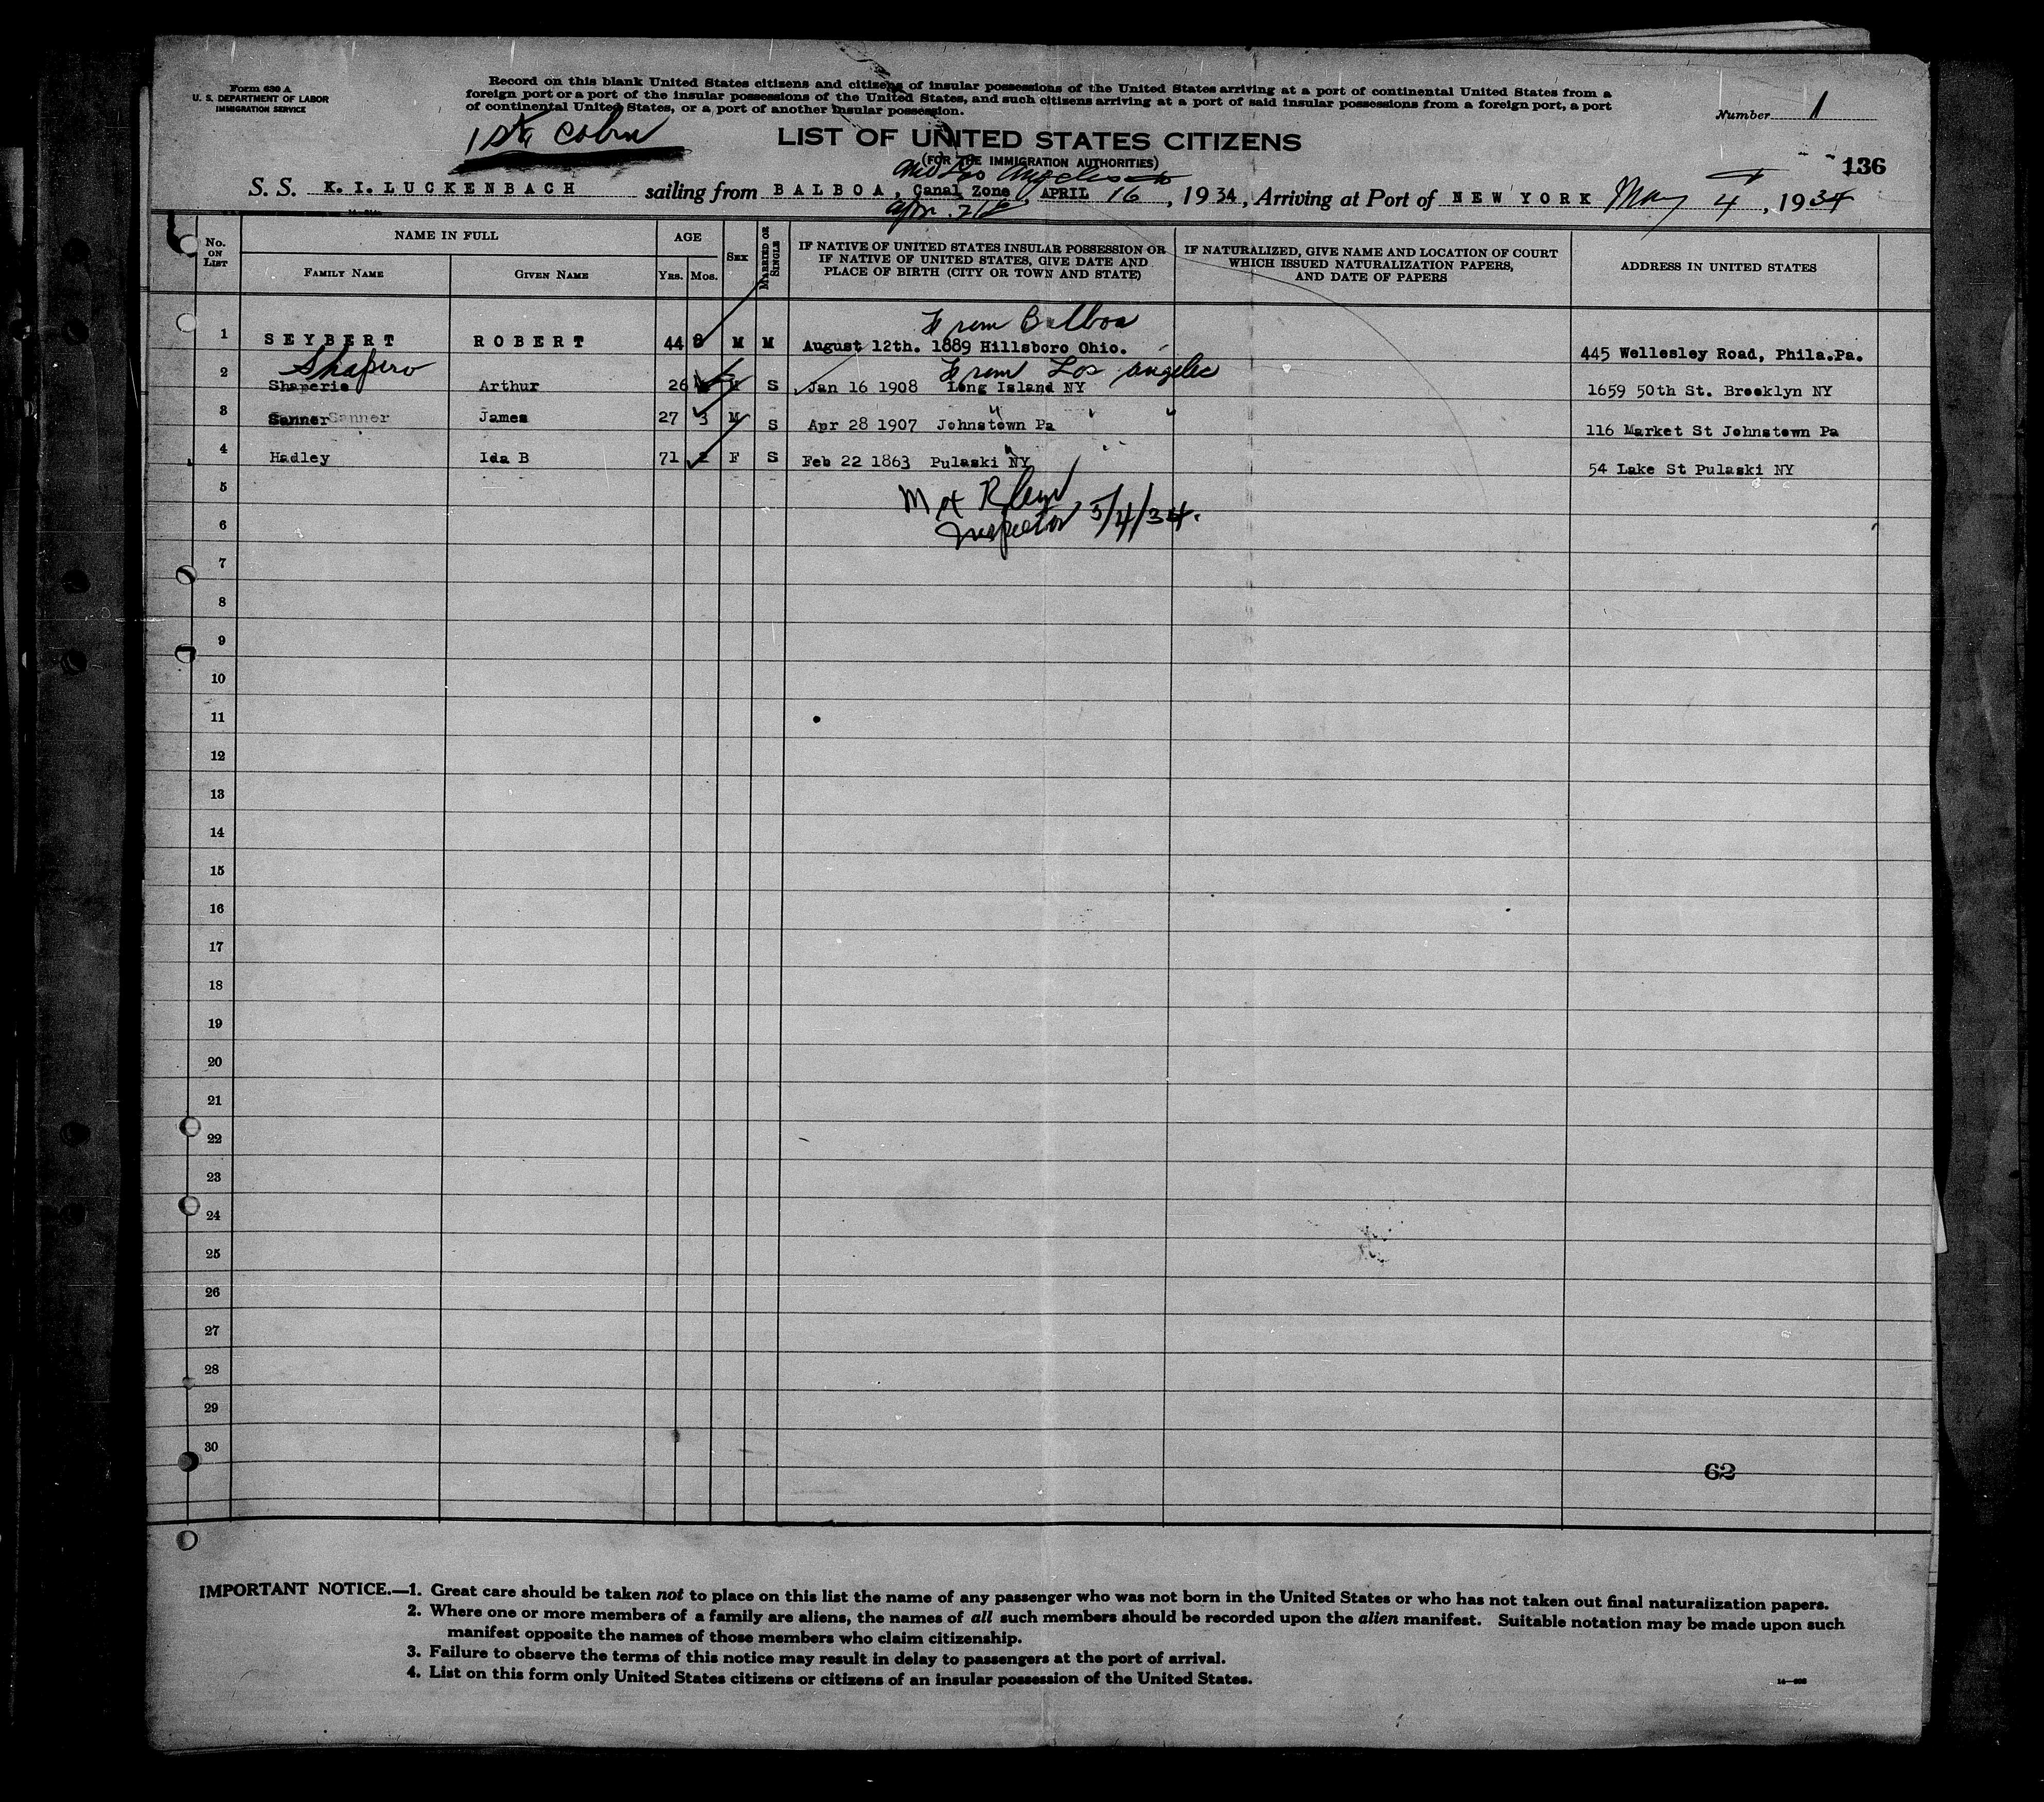 Form 630 A
U. S. DEPARTMENT OF LABOR
IMMIGRATION SERVICE
Record on this blank United States citizens and citizens of insular possessions of the United States arriving at a port of continental United States from a
foreign port or a port of the insular possessions of the United States, and such citizens arriving at a port of said insular possessions from a foreign port, a port
of continental United States, or a port of another insular possession.
Number 1
LIST OF UNITED STATES CITIZENS
(FOR THE IMMIGRATION AUTHORITIES)
136
and Los Angeles
S. S. K. I. LUCKENBACH sailing from BALBOA, Canal Zone, APRIL 16, 1934, Arriving at Port of NEW YORK May 4, 1934
No. ON LIST
NAME IN FULL
FAMILY NAME
GIVEN NAME
AGE
YRS. MOS.
SEX
MARRIED OR SINGLE
IF NATIVE OF UNITED STATES INSULAR POSSESSION OR
IF NATIVE OF UNITED STATES, GIVE DATE AND
PLACE OF BIRTH (CITY OR TOWN AND STATE)
IF NATURALIZED, GIVE NAME AND LOCATION OF COURT
WHICH ISSUED NATURALIZATION PAPERS,
AND DATE OF PAPERS
ADDRESS IN UNITED STATES
From Balboa
1 SEYBERT ROBERT 44 8 M M August 12th. 1889 Hillsboro Ohio. 445 Wellesley Road, Phila.Pa.
Shapiro From Los Angeles
2 Shaperie Arthur 26 M S Jan 16 1908 Long Island NY 1659 50th St. Brooklyn NY
3 Sanner Sanner James 27 3 M S Apr 28 1907 Johnstown Pa " " " 116 Market St Johnstown Pa
4 Hadley Ida B 71 F S Feb 22 1863 Pulaski NY " " 54 Lake St Pulaski NY
5
Inspector 5/4/34.
6
7
8
9
10
11
12
13
14
15
16
17
18
19
20
21
22
23
24
25
26
27
28
29
30
62
IMPORTANT NOTICE.—1. Great care should be taken not to place on this list the name of any passenger who was not born in the United States or who has not taken out final naturalization papers.
2. Where one or more members of a family are aliens, the names of all such members should be recorded upon the alien manifest. Suitable notation may be made upon such
manifest opposite the names of those members who claim citizenship.
3. Failure to observe the terms of this notice may result in delay to passengers at the port of arrival.
4. List on this form only United States citizens or citizens of an insular possession of the United States.